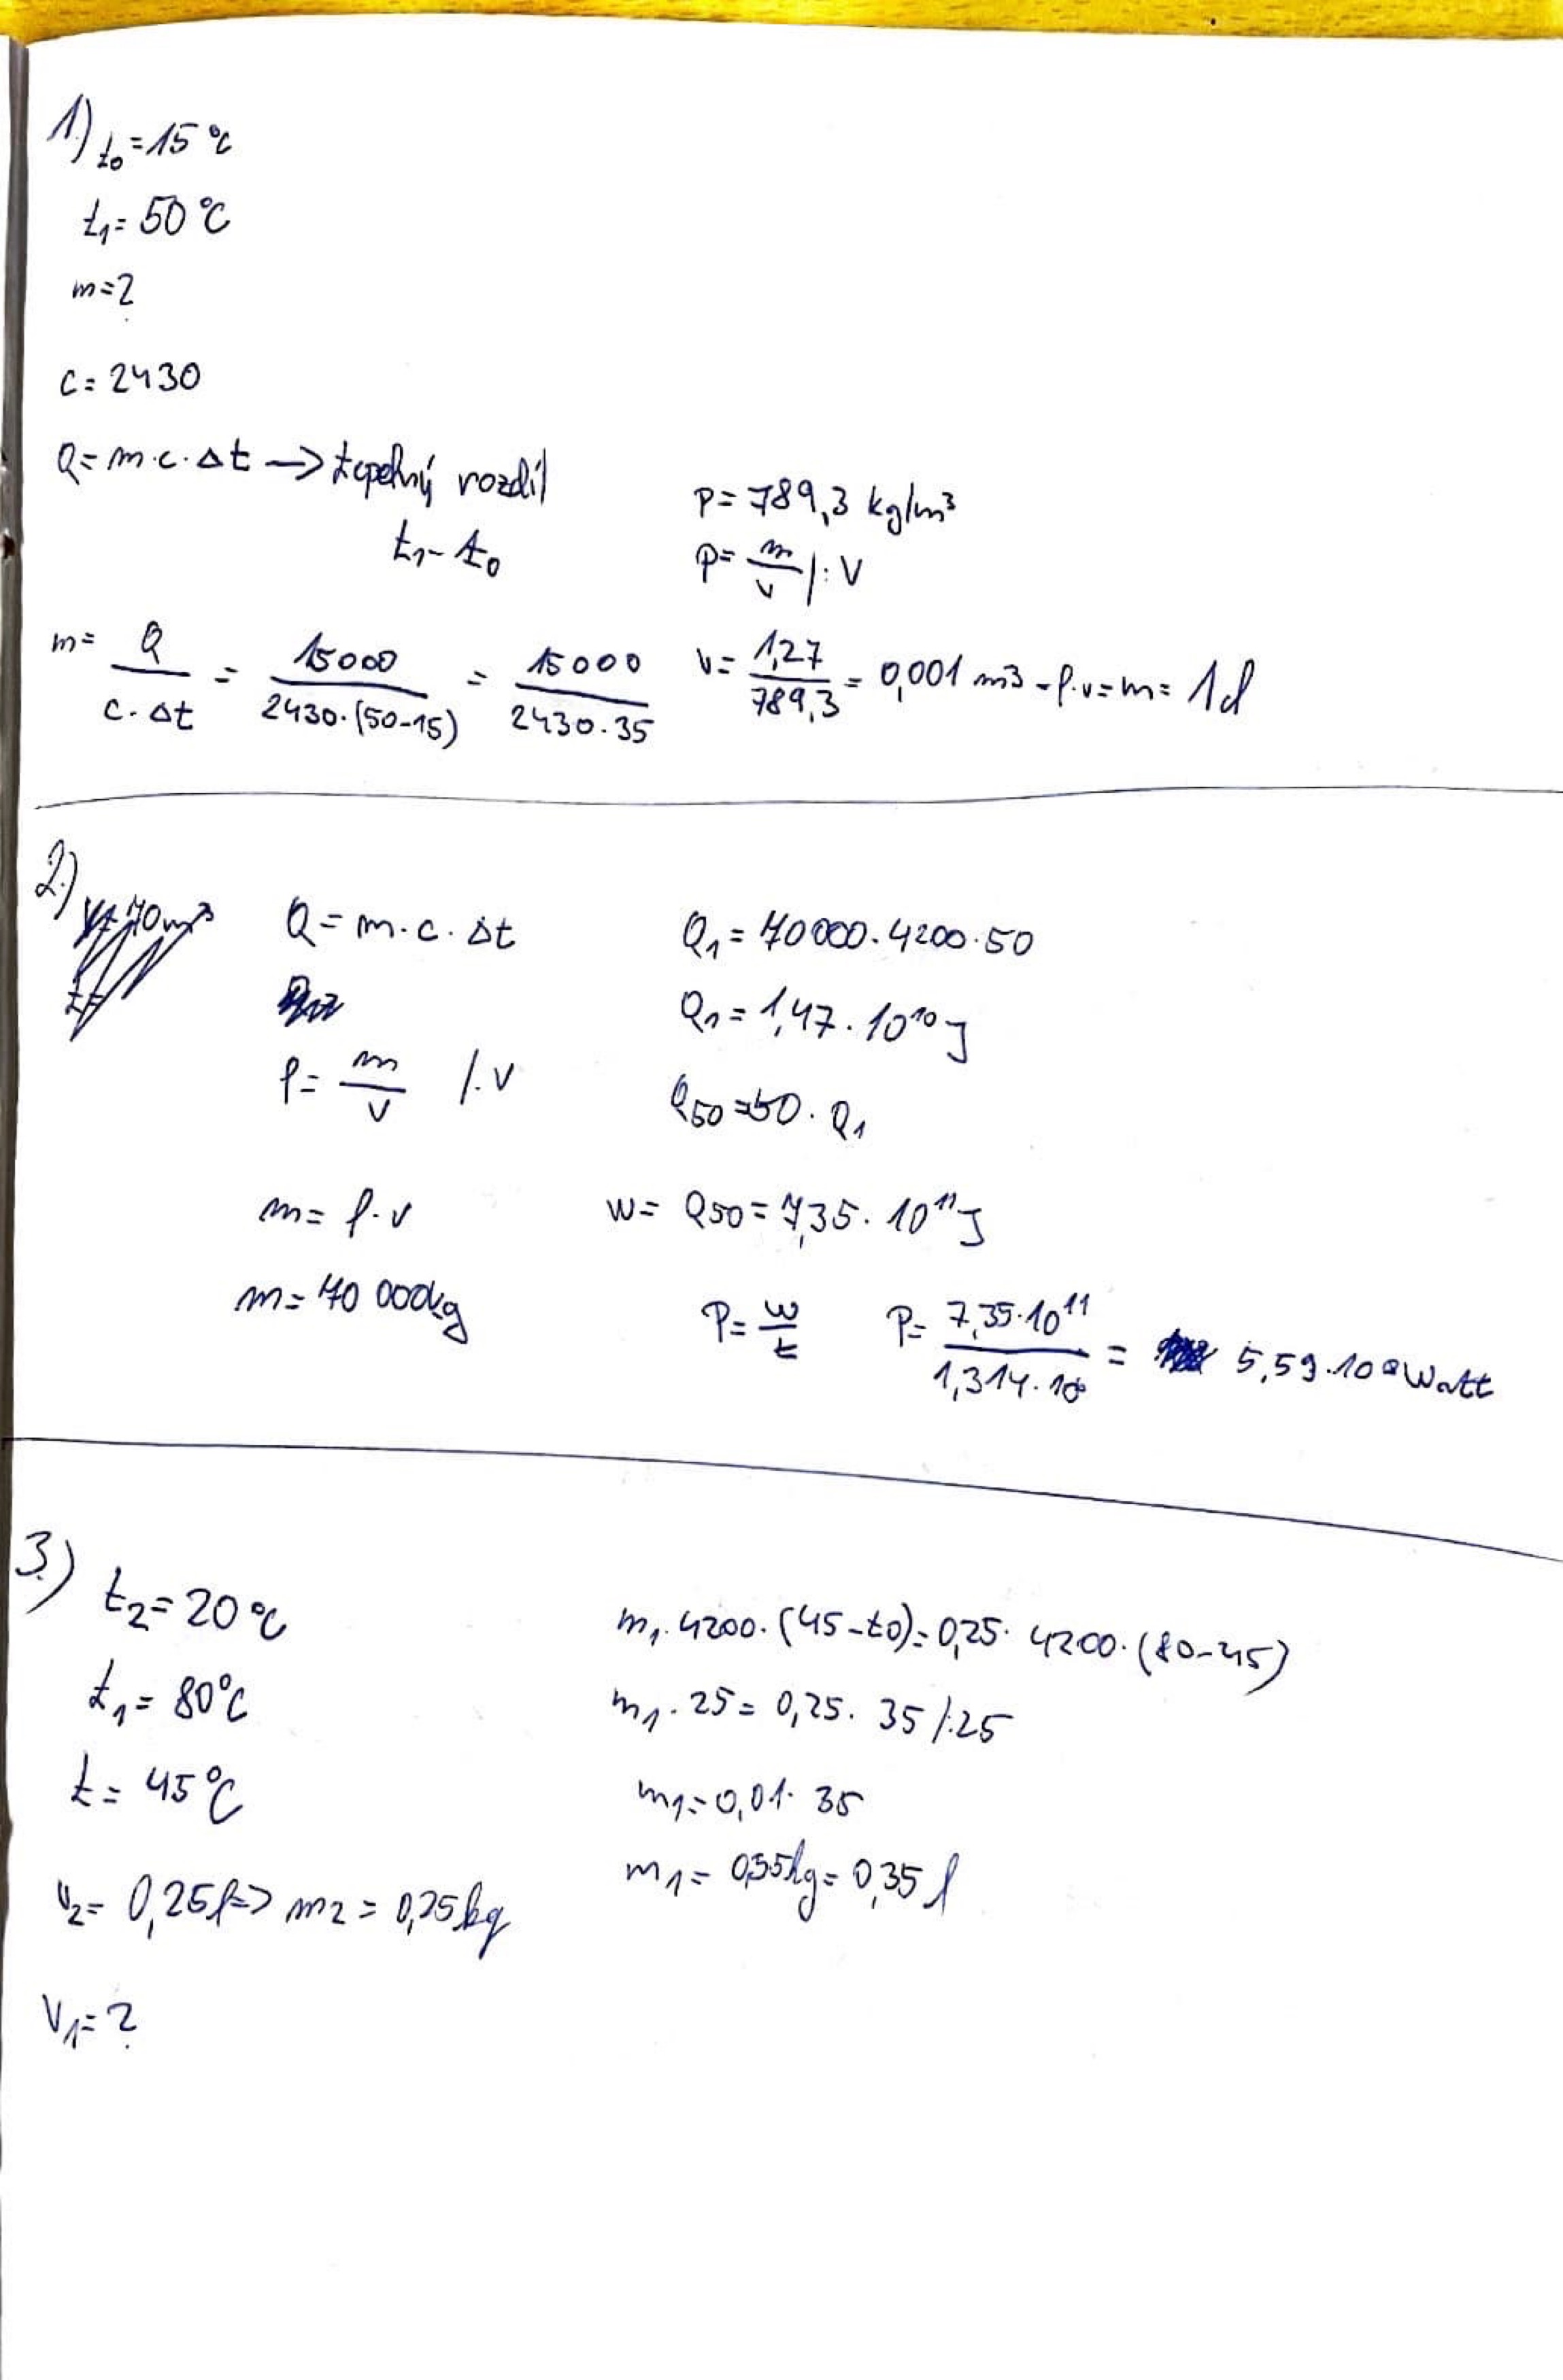 1.) t₀ = 15 °C
t₁ = 50 °C
m = ?
c = 2430
Q = m·c·Δt → tepelný rozdíl
t₁ - t₀
m = Q / c·Δt = 15000 / 2430·(50-15) = 15000 / 2430·35
ρ = 789,3 kg/m³
ρ = m/V /:V
V = 1,27 / 789,3 = 0,001 m³ - ρ·v = m = 1l
2.) V = 70m³
t =
Q = m·c·Δt
ρ = m/V /·V
m = ρ·v
m = 70 000kg
Q₁ = 70000·4200·50
Q₁ = 1,47·10¹⁰ J
Q₅₀ = 50·Q₁
W = Q₅₀ = 7,35·10¹¹ J
P = W/t P = 7,35·10¹¹ / 1,314·10⁶ = 5,59·10 Watt
3.) t₂ = 20 °C
t₁ = 80 °C
t = 45 °C
V₂ = 0,25l => m₂ = 0,25kg
V₁ = ?
m₁·4200·(45-t₀) = 0,25·4200·(80-45)
m₁·25 = 0,25·35 /:25
m₁ = 0,01·35
m₁ = 0,35kg = 0,35 l